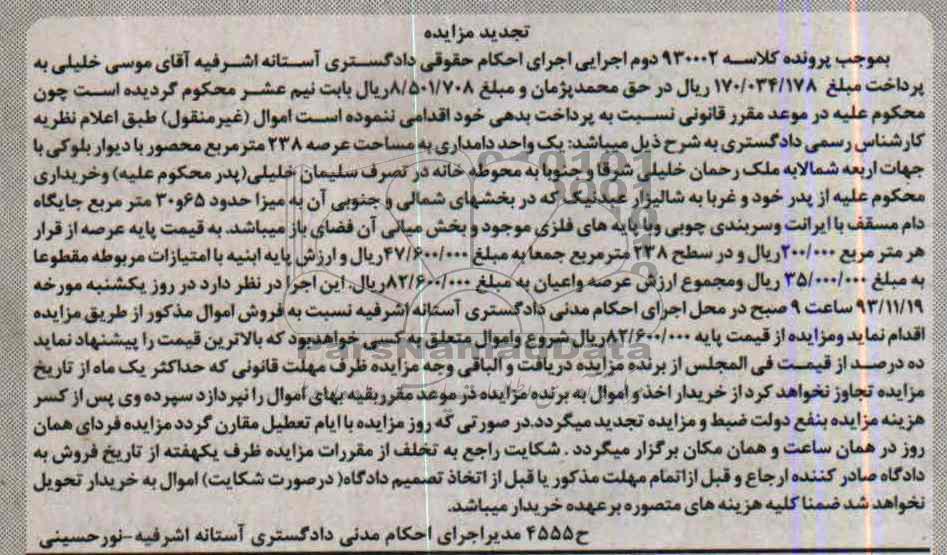 تجدید مزایده
بموجب پرونده کلاسه ۹۳۰۰۰۲ دوم اجرایی اجرای احکام حقوقی دادگستری آستانه اشرفیه آقای موسی خلیلی به
پرداخت مبلغ ۱۷۰/۰۳۴/۱۷۸ ریال در حق محمدپژمان و مبلغ ۸/۵۰۱/۷۰۸ریال بابت نیم عشر محکوم گردیده است چون
محکوم علیه در موعد مقرر قانونی نسبت به پرداخت بدهی خود اقدامی ننموده است اموال (غیرمنقول) طبق اعلام نظریه
کارشناس رسمی دادگستری به شرح ذیل میباشد: یک واحد دامداری به مساحت عرصه ۲۳۸ مترمربع محصور با دیوار بلوکی با
جهات اربعه شمالابه ملک رحمان خلیلی شرقا و جنوبا به محوطه خانه در تصرف سلیمان خلیلی(پدر محکوم علیه) وخریداری
محکوم علیه از پدر خود و غربا به شالیزار عبدنیک که در بخشهای شمالی و جنوبی آن به میزا حدود ۶۵و۳۰ متر مربع جایگاه
دام مسقف با ایرانت وسربندی چوبی وبا پایه های فلزی موجود و بخش میانی آن فضای باز میباشد. به قیمت پایه عرصه از قرار
هر متر مربع ۲۰۰/۰۰۰ریال و در سطح ۲۳۸ مترمربع جمعا به مبلغ ۴۷/۶۰۰/۰۰۰ریال و ارزش پایه ابنیه با امتیازات مربوطه مقطوعا
به مبلغ ۳۵/۰۰۰/۰۰۰ ریال ومجموع ارزش عرصه واعیان به مبلغ ۸۲/۶۰۰/۰۰۰ریال. این اجرا در نظر دارد در روز یکشنبه مورخه
۹۳/۱۱/۱۹ ساعت ۹ صبح در محل اجرای احکام مدنی دادگستری آستانه اشرفیه نسبت به فروش اموال مذکور از طریق مزایده
اقدام نماید ومزایده از قیمت پایه ۸۲/۶۰۰/۰۰۰ریال شروع واموال متعلق به کسی خواهدبود که بالاترین قیمت را پیشنهاد نماید
ده درصد از قیمت فی المجلس از برنده مزایده دریافت و الباقی وجه مزایده ظرف مهلت قانونی که حداکثر یک ماه از تاریخ
مزایده تجاوز نخواهد کرد از خریدار اخذ و اموال به برنده مزایده در موعد مقرربقیه بهای اموال را نپردازد سپرده وی پس از کسر
هزینه مزایده بنفع دولت ضبط و مزایده تجدید میگردد.در صورتی که روز مزایده با ایام تعطیل مقارن گردد مزایده فردای همان
روز در همان ساعت و همان مکان برگزار میگردد . شکایت راجع به تخلف از مقررات مزایده ظرف یکهفته از تاریخ فروش به
دادگاه صادر کننده ارجاع و قبل ازاتمام مهلت مذکور یا قبل از اتخاذ تصمیم دادگاه( درصورت شکایت) اموال به خریدار تحویل
نخواهد شد ضمنا کلیه هزینه های متصوره بر عهده خریدار میباشد.
ح۴۵۵۵ مدیراجرای احکام مدنی دادگستری آستانه اشرفیه-نورحسینی
ParsNamadData